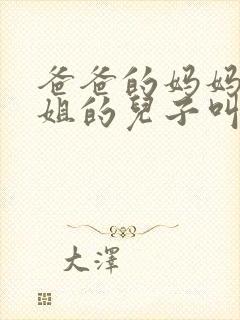 爸爸的妈妈
姐的兒子叫
大澤